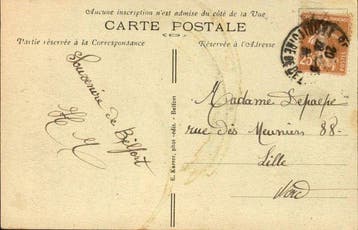 Aucune inscription n'est admise du côté de la Vue
CARTE POSTALE
Partie réservée à la Correspondance
Réservée à l'Adresse
Souvenire de Belfort
E. Karrer, phot.-édit. - Belfort
Madame Lepaepe
rue des Meuniers 88-
Lille
Nord